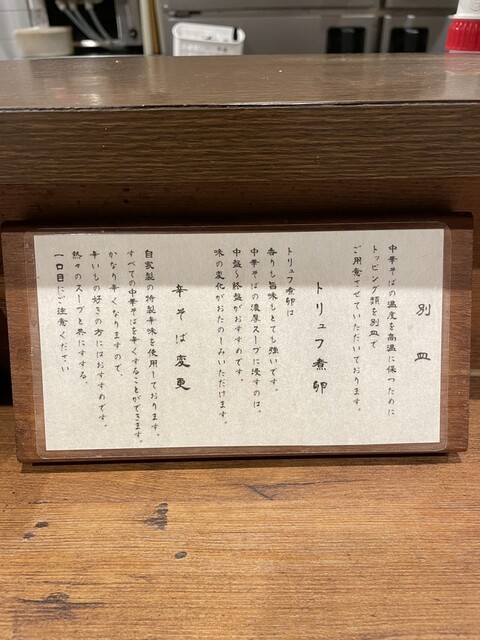 別皿
中華そばの温度を高温に保つために
トッピング類を別皿で
ご用意させていただいております。
トリュフ煮卵
トリュフ煮卵は
香りも旨味もとても強いです。
中華そばの濃厚スープに浸すのは、
中盤～終盤がおすすめです。
味の変化がおたのしみいただけます。
辛そば変更
自家製の特製辛味を使用しております。
すべての中華そばを辛くすることができます。
かなり辛くなりますので、
辛いもの好きの方にはおすすめです。
熱々のスープと共にすする、
一口目にご注意ください